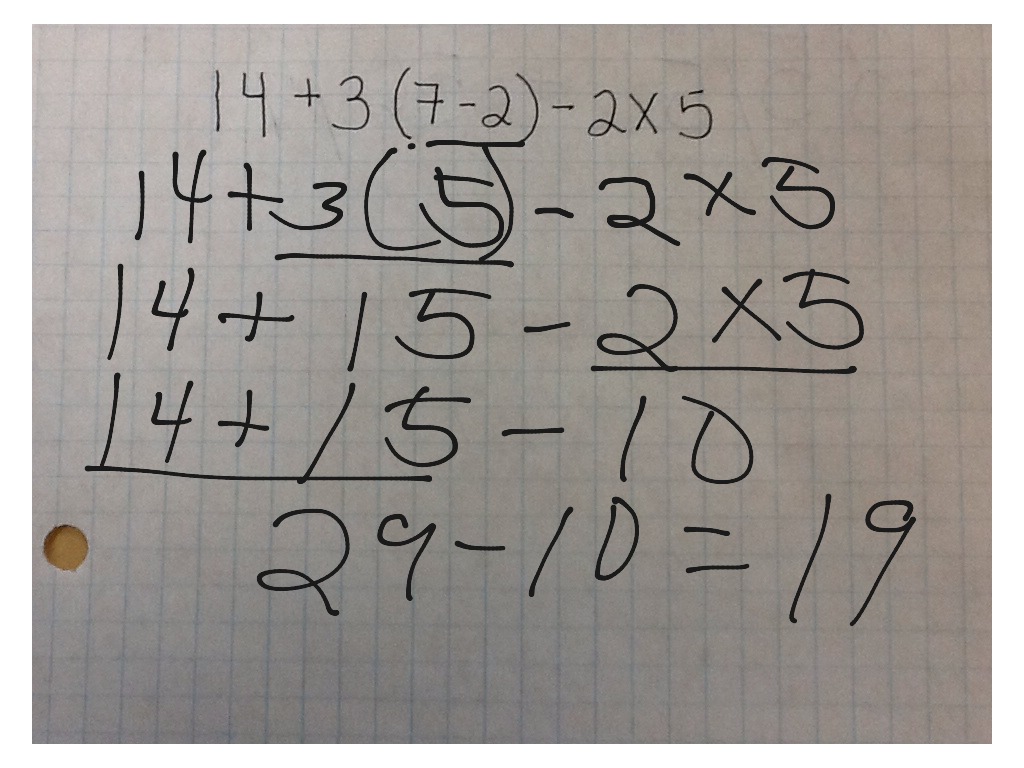 14 + 3 (7 - 2) - 2 × 5
14 + 3 (5) - 2 × 5
14 + 15 - 2 × 5
14 + 15 - 10
29 - 10 = 19